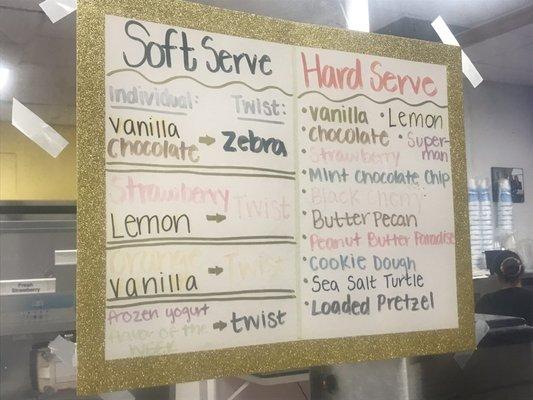 Soft Serve
Individual: Twist:
vanilla
chocolate → zebra
Strawberry
Lemon → Twist
orange
vanilla → Twist
frozen yogurt
flavor of the
week → twist
Hard Serve
• vanilla • Lemon
• chocolate • Super-
man
• Strawberry
• Mint Chocolate Chip
• Black Cherry
• Butter Pecan
• Peanut Butter Paradise
• Cookie Dough
• Sea Salt Turtle
• Loaded Pretzel
Fresh
Strawberry